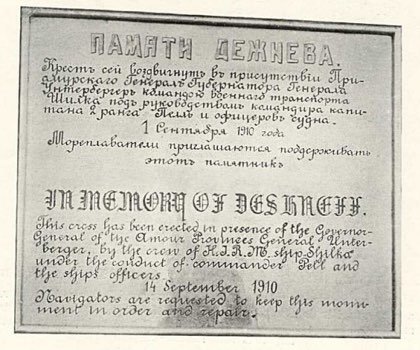 ПАМЯТИ ДЕЖНЕВА.
Крестъ сей воздвигнутъ въ присутствіи При-
амурскаго Генералъ Губернатора Генерала
Унтербергеръ командою военнаго транспорта
"Шилка" подъ руководствомъ командира капи-
тана 2 ранга Пелль и офицеровъ судна.
1 Сентября 1910 года
Мореплаватели приглашаются поддерживать
этотъ памятникъ
IN MEMORY OF DESHNEFF.
This cross has been erected in presence of the Governor-
General of the Amour Provinces General Unter-
berger, by the crew of H.I.R.M. ship Shilka
under the conduct of commander Pell and
the ships officers.
14 September 1910
Navigators are requested to keep this monu-
ment in order and repair.